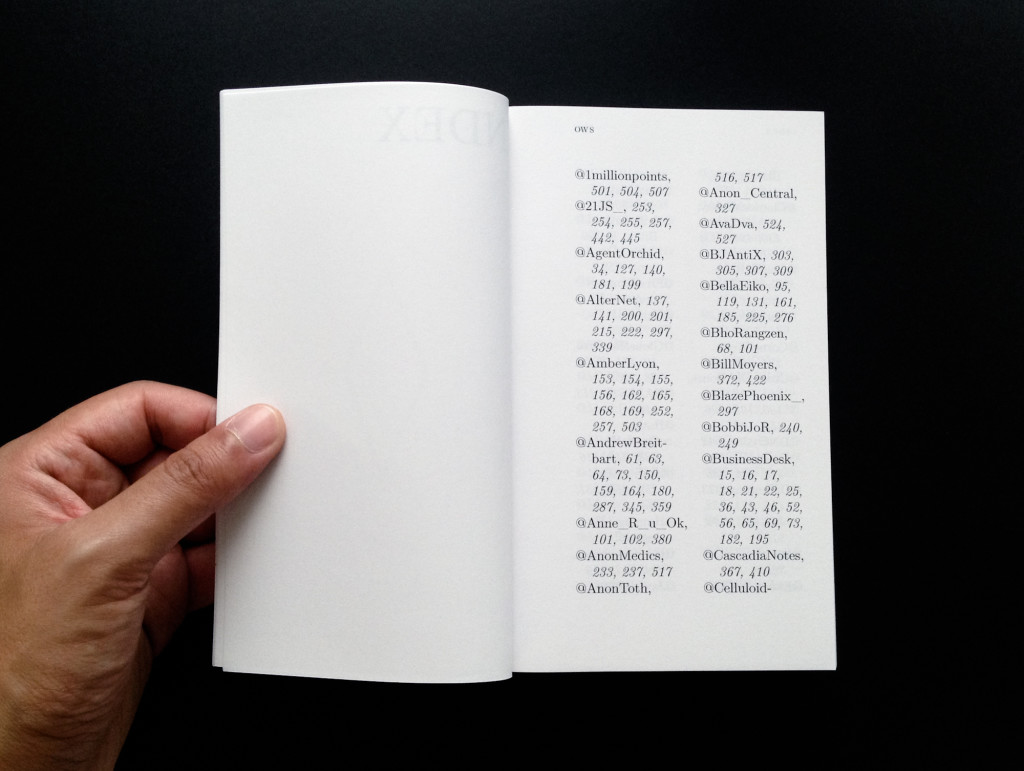 INDEX
OWS
@1millionpoints,
501, 504, 507
@21JS_, 253,
254, 255, 257,
442, 445
@AgentOrchid,
34, 127, 140,
181, 199
@AlterNet, 137,
141, 200, 201,
215, 222, 297,
339
@AmberLyon,
153, 154, 155,
156, 162, 165,
168, 169, 252,
257, 503
@AndrewBreit-
bart, 61, 63,
64, 73, 150,
159, 164, 180,
287, 345, 359
@Anne_R_u_Ok,
101, 102, 380
@AnonMedics,
233, 237, 517
@AnonToth,
516, 517
@Anon_Central,
327
@AvaDva, 524,
527
@BJAntiX, 303,
305, 307, 309
@BellaEiko, 95,
119, 131, 161,
185, 225, 276
@BhoRangzen,
68, 101
@BillMoyers,
372, 422
@BlazePhoenix_,
297
@BobbiJoR, 240,
249
@BusinessDesk,
15, 16, 17,
18, 21, 22, 25,
36, 43, 46, 52,
56, 65, 69, 73,
182, 195
@CascadiaNotes,
367, 410
@Celluloid-